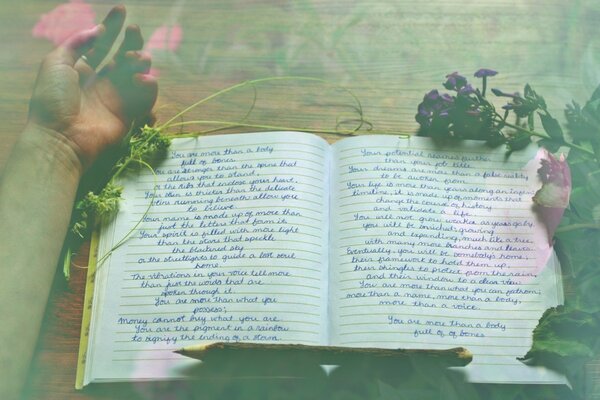 You are more than a body
full of bones.
You are stronger than the spine that
allows you to stand,
or the ribs that enclose your heart.
You are thicker than the delicate
skins running beneath allow you
to believe.
Your name is made up of more than
just the letters that form it.
Your spirit is filled with more light
than the stars that speckle
the blackened sky
or the streetlights to guide a lost soul
home.
The vibrations in your voice tell more
than just the words that are
spoken through it.
You are more than what you
possess;
Money cannot buy what you are.
You are the pigment in a rainbow
to signify the ending of a storm.
Your potential reaches further
than your felt
Your dreams are more than a false reality
to be ashed.
Your life is more than years along an
timeline, it is made up of moments that
change the course of history
and validate a life.
You will not grow weaker as years go by,
you will be enriched, growing
and expanding, much like a tree,
with many more branches and leaves.
Eventually, you will be somebody's home,
their framework to hold them up,
their shingles to protect from the rain,
and their window to a clear day.
You are more than what you can fathom,
more than a name, more than a body,
more than a voice.
You are more than a body
full of of bones.